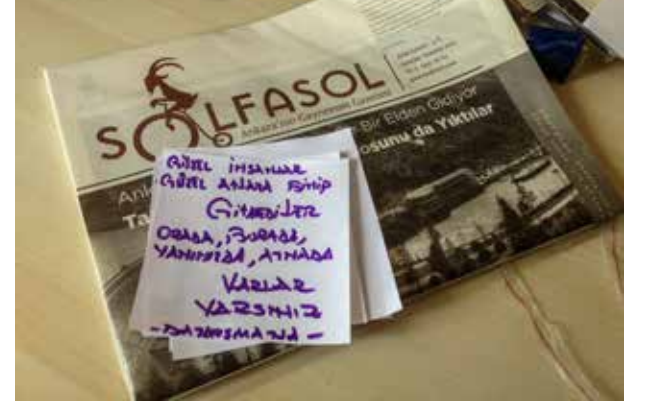 SOLFASOL
Ankara'nın Gayriresmi Gazetesi
Bir Elden Gidiyor
osunu da Yıktılar
Ank
Ta
GÜZEL İNSANLAR
GÜZEL ATLARA BİNİP
GİTMEDİLER
ORADA, BURADA,
YANIMIZDA,
VARLAR
VARSINIZ